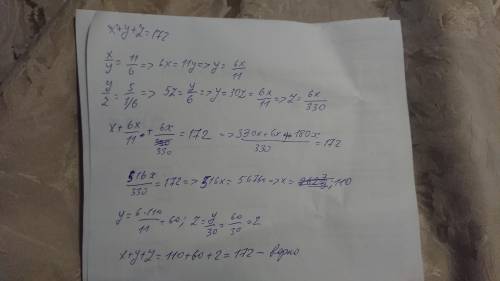 x+y+z=172
x/y = 11/6 => 6x = 11y => y = 6x/11
y/z = 5/(1/6) => 5z = y/6 => y = 30z = 6x/11 => z = 6x/330
x + 6x/11 + 6x/330 = 172 => (330x+6x+180x)/330 = 172
516x/330 = 172 => 516x = 56760 => x = 110
y = 6·110/11 = 60; z = y/30 = 60/30 = 2
x+y+z = 110+60+2 = 172 - верно